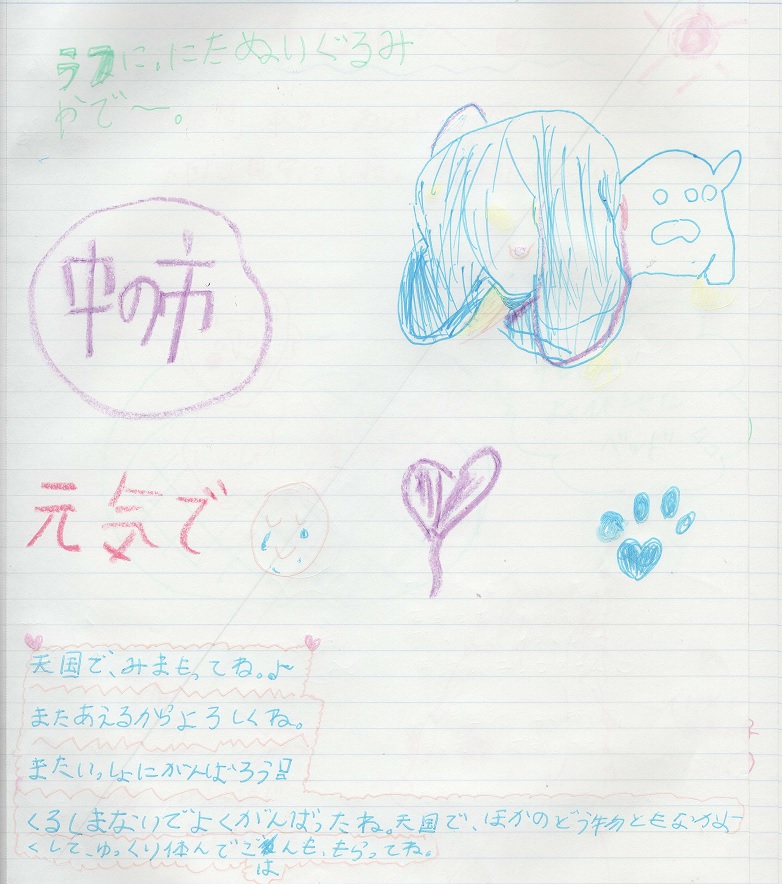 に,にたぬいぐるみ
やで〜。
中の方
元気で
天国で、みまもってね。
またあえるからよろしくね。
またいっしょにがんばろう
くるしまないでよくがんばったね。天国で、ほかのどう物ともなかよ
くして、ゆっくり休んでごはんも、もらってね。